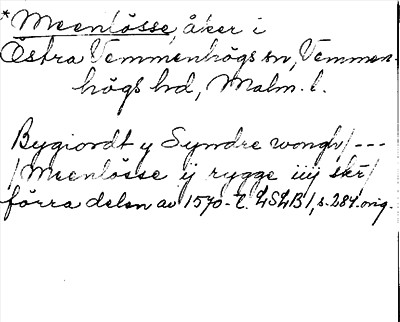 *Meenlösse, åker i
Östra Vemmenhögs sn, Vemmen-
högs hd, Malm. l.
Bygiordt y Syndre wongh/---
/Meenlösse ij rygge iiij skr/
förra delen av 1570-t. LSLB 1, s. 284. orig.